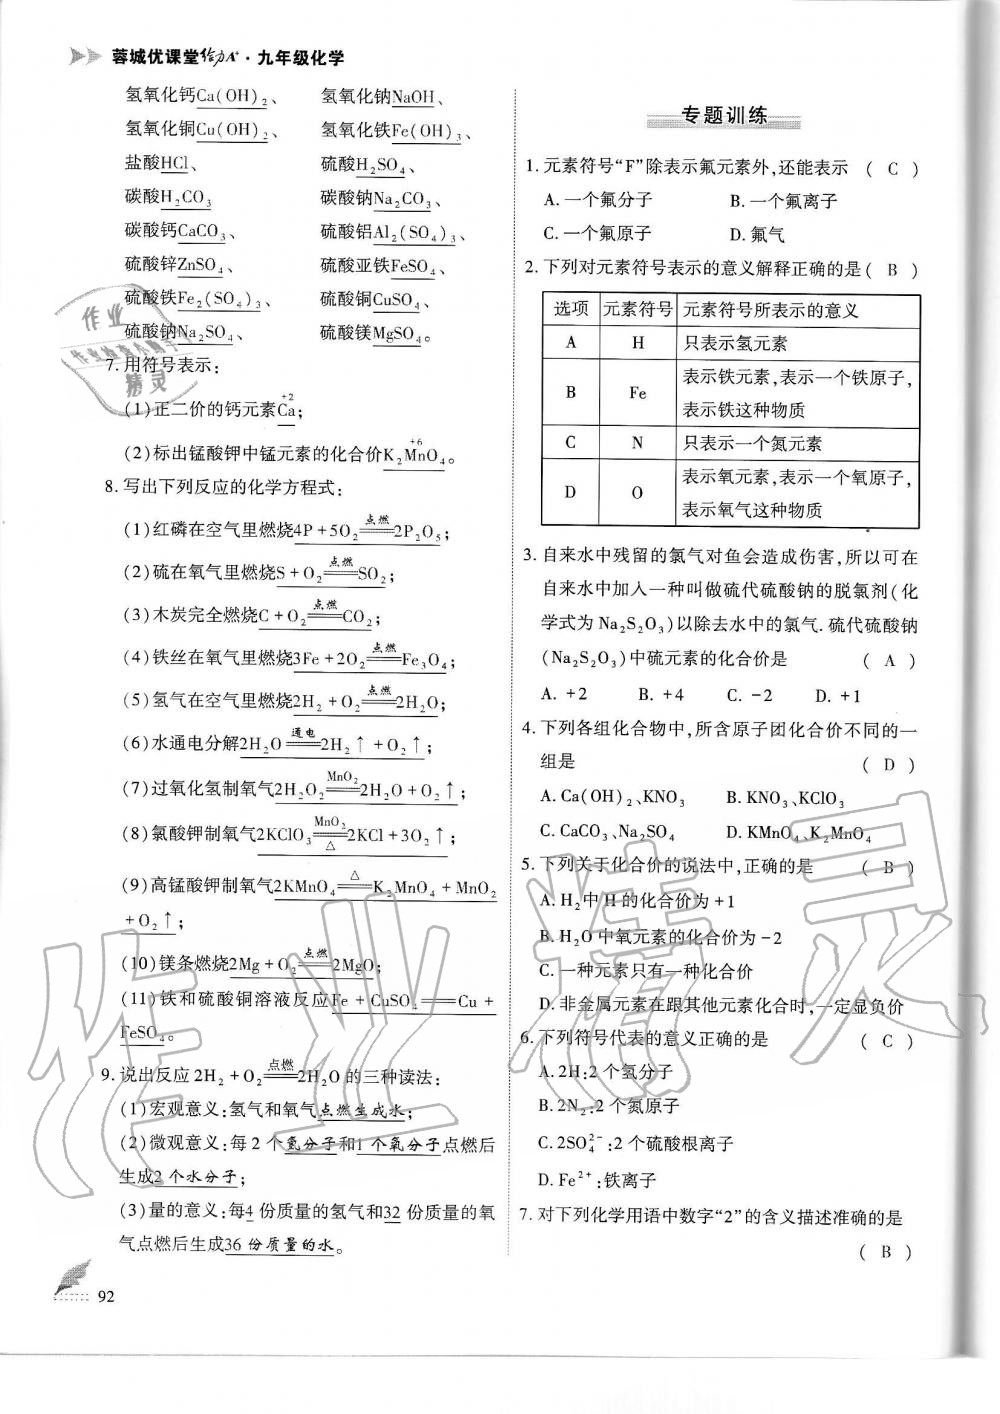 蓉城优课堂给力A⁺·九年级化学
氢氧化钙Ca(OH)₂、 氢氧化钠NaOH、
氢氧化铜Cu(OH)₂、 氢氧化铁Fe(OH)₃、
盐酸HCl、 硫酸H₂SO₄、
碳酸H₂CO₃ 碳酸钠Na₂CO₃、
碳酸钙CaCO₃、 硫酸铝Al₂(SO₄)₃、
硫酸锌ZnSO₄、 硫酸亚铁FeSO₄、
硫酸铁Fe₂(SO₄)₃、 硫酸铜CuSO₄、
硫酸钠Na₂SO₄、 硫酸镁MgSO₄。
7. 用符号表示:
+2
(1)正二价的钙元素Ca;
+6
(2)标出锰酸钾中锰元素的化合价K₂MnO₄。
8. 写出下列反应的化学方程式:
(1)红磷在空气里燃烧4P+5O₂ 点燃══ 2P₂O₅;
(2)硫在氧气里燃烧S+O₂ 点燃══ SO₂;
(3)木炭完全燃烧C+O₂ 点燃══ CO₂;
(4)铁丝在氧气里燃烧3Fe+2O₂ 点燃══ Fe₃O₄;
(5)氢气在空气里燃烧2H₂+O₂ 点燃══ 2H₂O;
(6)水通电分解2H₂O 通电══ 2H₂↑+O₂↑;
(7)过氧化氢制氧气2H₂O₂ MnO₂══ 2H₂O+O₂↑;
(8)氯酸钾制氧气2KClO₃ MnO₂══△ 2KCl+3O₂↑;
(9)高锰酸钾制氧气2KMnO₄ △══ K₂MnO₄+MnO₂
+O₂↑;
(10)镁条燃烧2Mg+O₂ 点燃══ 2MgO;
(11)铁和硫酸铜溶液反应Fe+CuSO₄══Cu+
FeSO₄。
9. 说出反应2H₂+O₂ 点燃══ 2H₂O的三种读法:
(1)宏观意义:氢气和氧气点燃生成水;
(2)微观意义:每2个氢分子和1个氧分子点燃后
生成2个水分子;
(3)量的意义:每4份质量的氢气和32份质量的氧
气点燃后生成36份质量的水。
92
专题训练
1. 元素符号“F”除表示氟元素外,还能表示 ( C )
A. 一个氟分子 B. 一个氟离子
C. 一个氟原子 D. 氟气
2. 下列对元素符号表示的意义解释正确的是( B )
选项 元素符号 元素符号所表示的意义
A H 只表示氢元素
B Fe 表示铁元素,表示一个铁原子,
表示铁这种物质
C N 只表示一个氮元素
D O 表示氧元素,表示一个氧原子,
表示氧气这种物质
3. 自来水中残留的氯气对鱼会造成伤害,所以可在
自来水中加入一种叫做硫代硫酸钠的脱氯剂(化
学式为Na₂S₂O₃)以除去水中的氯气.硫代硫酸钠
(Na₂S₂O₃)中硫元素的化合价是 ( A )
A. +2 B. +4 C. -2 D. +1
4. 下列各组化合物中,所含原子团化合价不同的一
组是 ( D )
A. Ca(OH)₂、KNO₃ B. KNO₃、KClO₃
C. CaCO₃、Na₂SO₄ D. KMnO₄、K₂MnO₄
5. 下列关于化合价的说法中,正确的是 ( B )
A. H₂中H的化合价为+1
B. H₂O中氧元素的化合价为-2
C. 一种元素只有一种化合价
D. 非金属元素在跟其他元素化合时,一定显负价
6. 下列符号代表的意义正确的是 ( C )
A. 2H:2个氢分子
B. 2N₂:2个氮原子
C. 2SO₄²⁻:2个硫酸根离子
D. Fe²⁺:铁离子
7. 对下列化学用语中数字“2”的含义描述准确的是
( B )
作业精灵